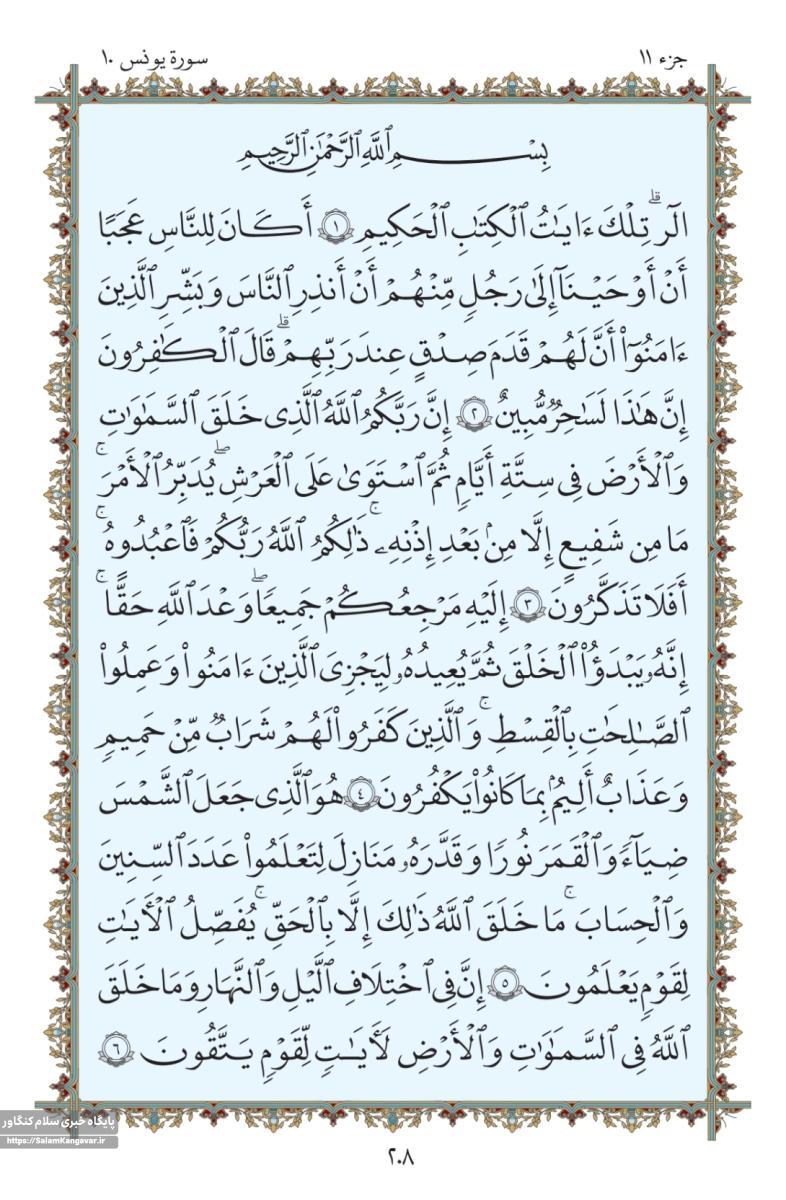 جزء ١١
سورة يونس ١٠
بِسْمِ ٱللَّهِ ٱلرَّحْمَٰنِ ٱلرَّحِيمِ
الٓرۗ تِلْكَ ءَايَٰتُ ٱلْكِتَٰبِ ٱلْحَكِيمِ ١ أَكَانَ لِلنَّاسِ عَجَبًا
أَنْ أَوْحَيْنَآ إِلَىٰ رَجُلٍ مِّنْهُمْ أَنْ أَنذِرِ ٱلنَّاسَ وَبَشِّرِ ٱلَّذِينَ
ءَامَنُوٓا۟ أَنَّ لَهُمْ قَدَمَ صِدْقٍ عِندَ رَبِّهِمْۗ قَالَ ٱلْكَٰفِرُونَ
إِنَّ هَٰذَا لَسَٰحِرٌ مُّبِينٌ ٢ إِنَّ رَبَّكُمُ ٱللَّهُ ٱلَّذِى خَلَقَ ٱلسَّمَٰوَٰتِ
وَٱلْأَرْضَ فِى سِتَّةِ أَيَّامٍ ثُمَّ ٱسْتَوَىٰ عَلَى ٱلْعَرْشِۖ يُدَبِّرُ ٱلْأَمْرَۚ
مَا مِن شَفِيعٍ إِلَّا مِنۢ بَعْدِ إِذْنِهِۦۚ ذَٰلِكُمُ ٱللَّهُ رَبُّكُمْ فَٱعْبُدُوهُۚ
أَفَلَا تَذَكَّرُونَ ٣ إِلَيْهِ مَرْجِعُكُمْ جَمِيعًاۖ وَعْدَ ٱللَّهِ حَقًّاۚ
إِنَّهُۥ يَبْدَؤُا۟ ٱلْخَلْقَ ثُمَّ يُعِيدُهُۥ لِيَجْزِىَ ٱلَّذِينَ ءَامَنُوا۟ وَعَمِلُوا۟
ٱلصَّٰلِحَٰتِ بِٱلْقِسْطِۚ وَٱلَّذِينَ كَفَرُوا۟ لَهُمْ شَرَابٌ مِّنْ حَمِيمٍ
وَعَذَابٌ أَلِيمٌۢ بِمَا كَانُوا۟ يَكْفُرُونَ ٤ هُوَ ٱلَّذِى جَعَلَ ٱلشَّمْسَ
ضِيَآءً وَٱلْقَمَرَ نُورًا وَقَدَّرَهُۥ مَنَازِلَ لِتَعْلَمُوا۟ عَدَدَ ٱلسِّنِينَ
وَٱلْحِسَابَۚ مَا خَلَقَ ٱللَّهُ ذَٰلِكَ إِلَّا بِٱلْحَقِّۚ يُفَصِّلُ ٱلْءَايَٰتِ
لِقَوْمٍ يَعْلَمُونَ ٥ إِنَّ فِى ٱخْتِلَٰفِ ٱلَّيْلِ وَٱلنَّهَارِ وَمَا خَلَقَ
ٱللَّهُ فِى ٱلسَّمَٰوَٰتِ وَٱلْأَرْضِ لَءَايَٰتٍ لِّقَوْمٍ يَتَّقُونَ ٦
پایگاه خبری سلام کنگاور
https://SalamKangavar.ir
٢٠٨